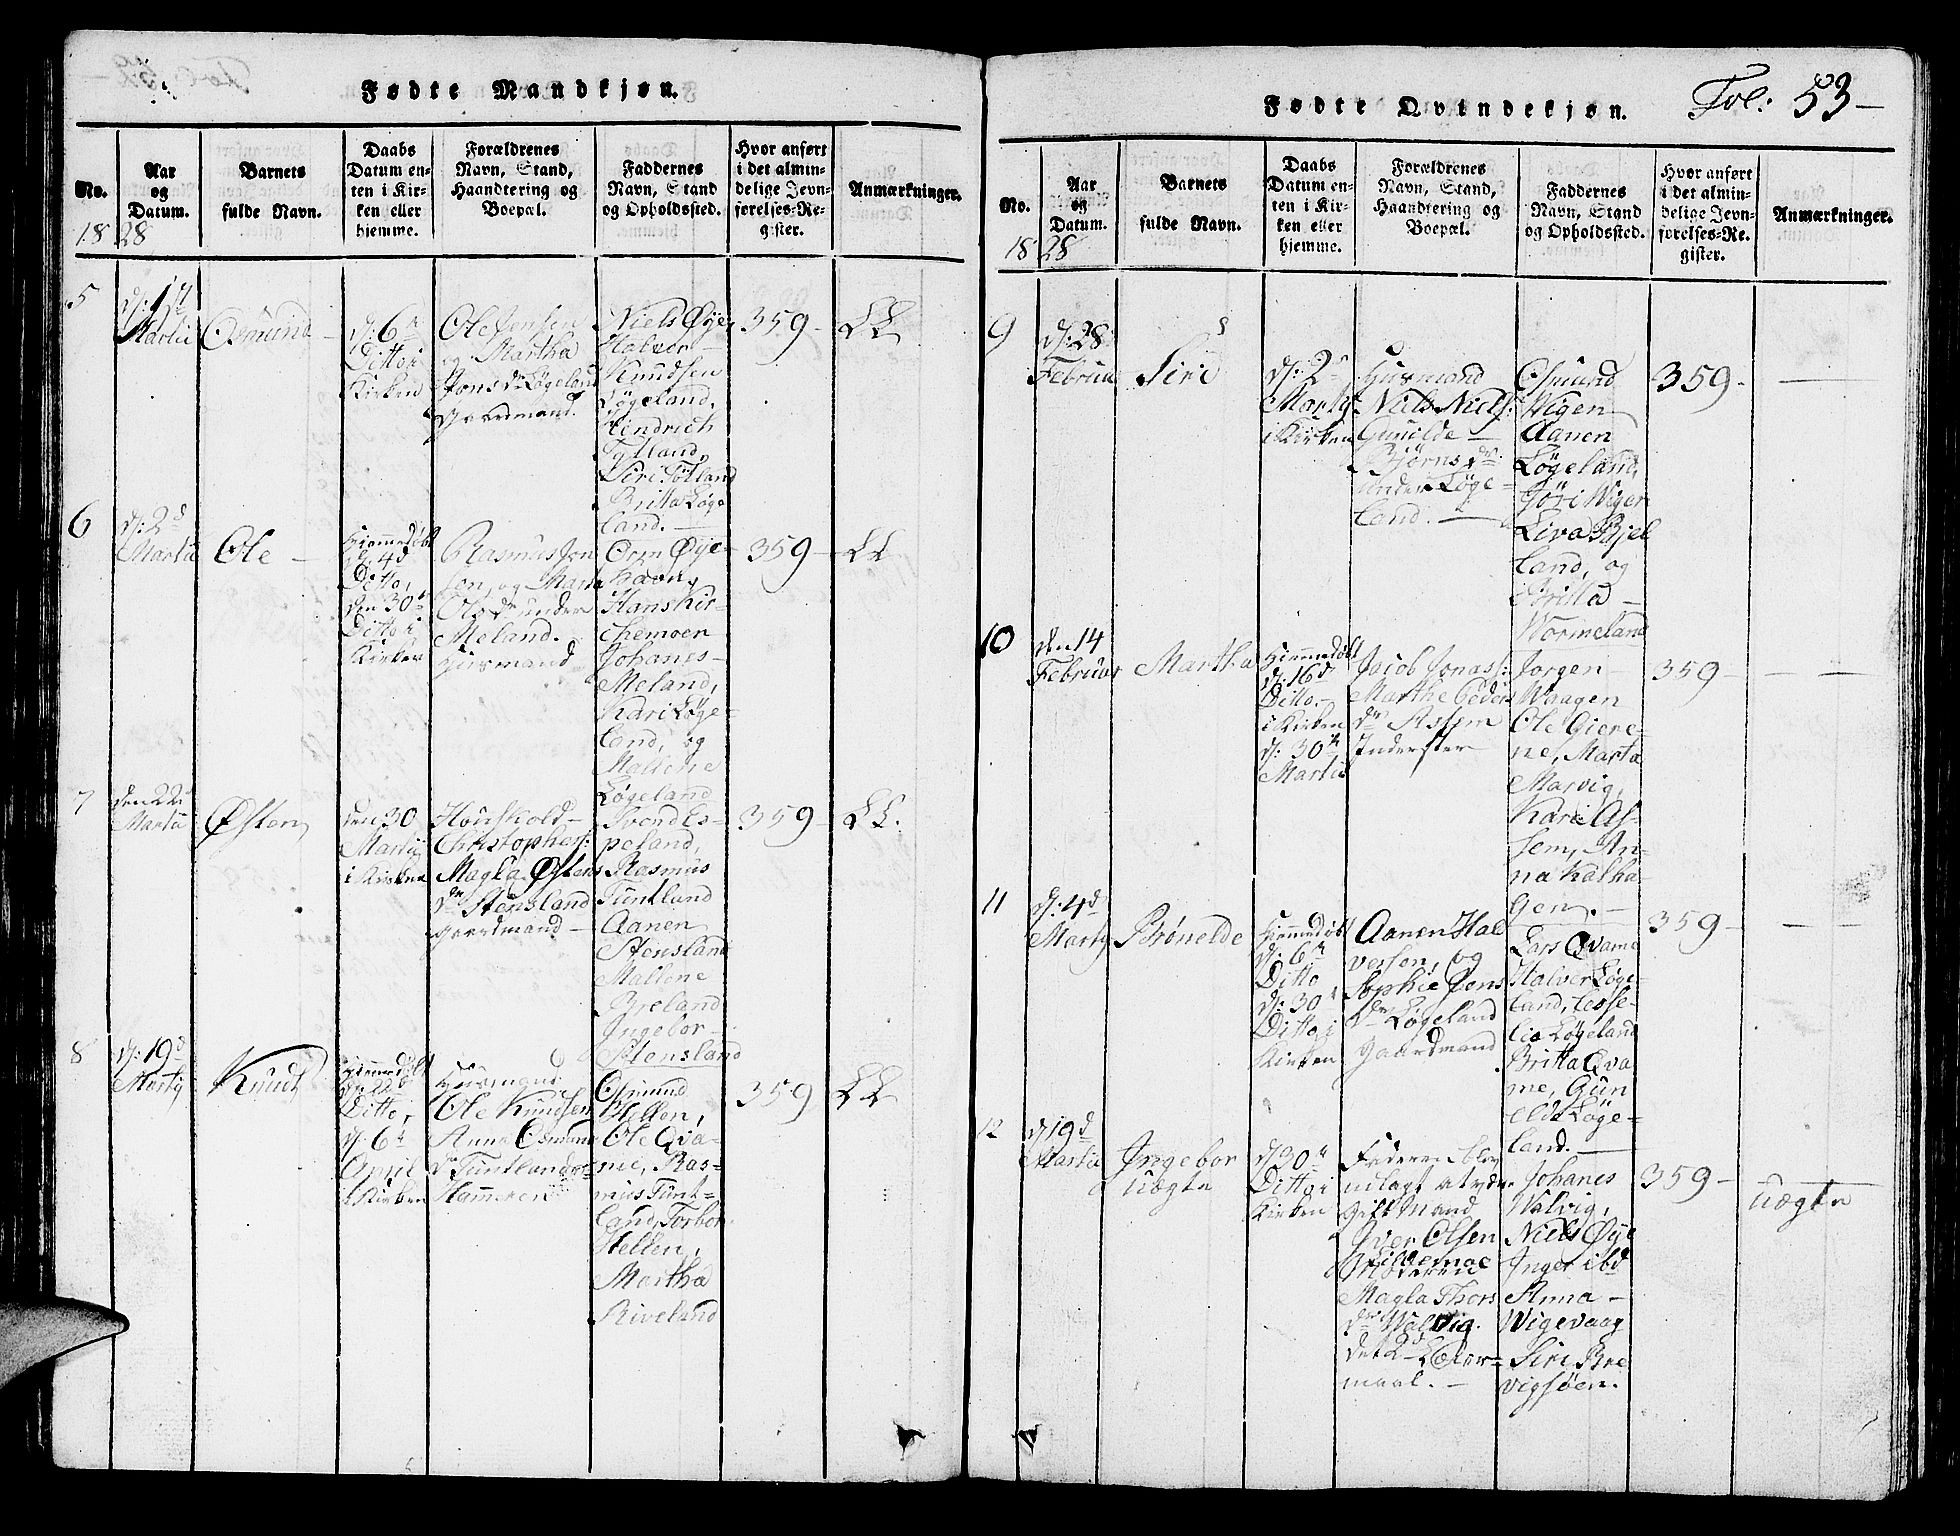 Fødte Mandkjøn.
No.
Aar
og
Datum.
Barnets
fulde Navn.
Daabs
Datum en-
ten i Kir-
ken eller
hjemme.
Forældrenes
Navn, Stand,
Haandtering og
Boepæl.
Faddernes
Navn, Stand
og Opholdssted.
Hvor anført
i det almin-
delige Jevn-
førelses-Re-
gister.
Anmærkninger.
1828
5
Martii
Osmund
d: 6
Ditto i
Kirken
Ole Jensen
og Martha
Jons dr Løgeland
Gaardmand.
Niels Øye,
Halver
Knudsen
Løgeland,
Hendrich
Tytland,
Siri
Britta Løge
land.
359
6
d: 2
Martii
Ole
Hiemmedøbt
d: 4d
Ditto,
den 30
Ditto i
Kirken
Rasmus Jon
sen, og Marta
Ols dr under
Meland.
Husmand
Orm Øye
havn,
Hans Kir-
chemoen
Johanes
Meland,
Kari Løge-
land, og
Mallene
Løgeland
359
7
den 22
Martii
Østen
den 30
Martii
i Kirken
Houskold
Christophers:
Magla Østens
dr Stensland
Gaardmand
Svend Es-
peland,
Rasmus
Tuntland
Aanen
Stensland
Mallene
Breland
Ingebor
Stensland
359
8
d: 19d
Marty
Knud
Hiemmedøbt
d: 22
Ditto,
d: 6
April
i Kirken
Husmand
Ole Knudsen
Anna Osmunds
dr Tuntland
Hammeren
Osmund
Hellen,
Ole Qva-
me, Ras-
mus Tunt-
land, Torbor
Hellen,
Martha
Riveland
359
Fødte Qvindekjøn.
Fol: 53
No.
Aar
og
Datum.
Barnets
fulde Navn.
Daabs
Datum en-
ten i Kir-
ken eller
hjemme.
Forældrenes
Navn, Stand,
Haandtering og
Boepæl.
Faddernes
Navn, Stand
og Opholdssted.
Hvor anført
i det almin-
delige Jevn-
førelses-Re-
gister.
Anmærkninger.
1828
9
d: 28
Februa
Siri
d: 2
Marty
i Kirken
Husmand
Niels Niels:
Gunilde
Bjørns dr
under Løge-
land.
Osmund
Wigen
Aanen
Løgeland,
Jöri Wigen
Liva Bjel
land, og
Britta
Wormeland
359
10
den 14
Februar
Martha
Hiemmedøbt
d: 16d
Ditto.
i Kirken
d: 30
Martii
Jacob Jonass:
Marthe Peders
dr Assem
Inderster
Jorgen
Waagen
Ole Giere-
ne, Marta
Marvig,
Kari As-
sem, An-
na Kalha-
gen.
359
11
d: 4d
Marty
Brønelde
Hiemmedøbt
d: 6
Ditto
d: 30
Ditto i
Kirken
Aanen Hal
versen, og
Sophie Jens
dr Løgeland
Gaardmand
Lars Qvame
Halver Løge
land, Cesse-
lia Løgeland
Britta Qva
me, Gun
elde Løge-
land.
359
12
d 19d
Martii
Ingebor
uægte
d 30
Ditto i
Kirken
Faderen blev
udlagt
gift Mand
Iver Olsen
Moderen
Magla Thors
dr Walvig.
det 2
maal.
Johanes
Walvig,
Niels Øye
Inger ibd
Anna
Wigevaag
Siri Bre
vigsøen.
359
uægte